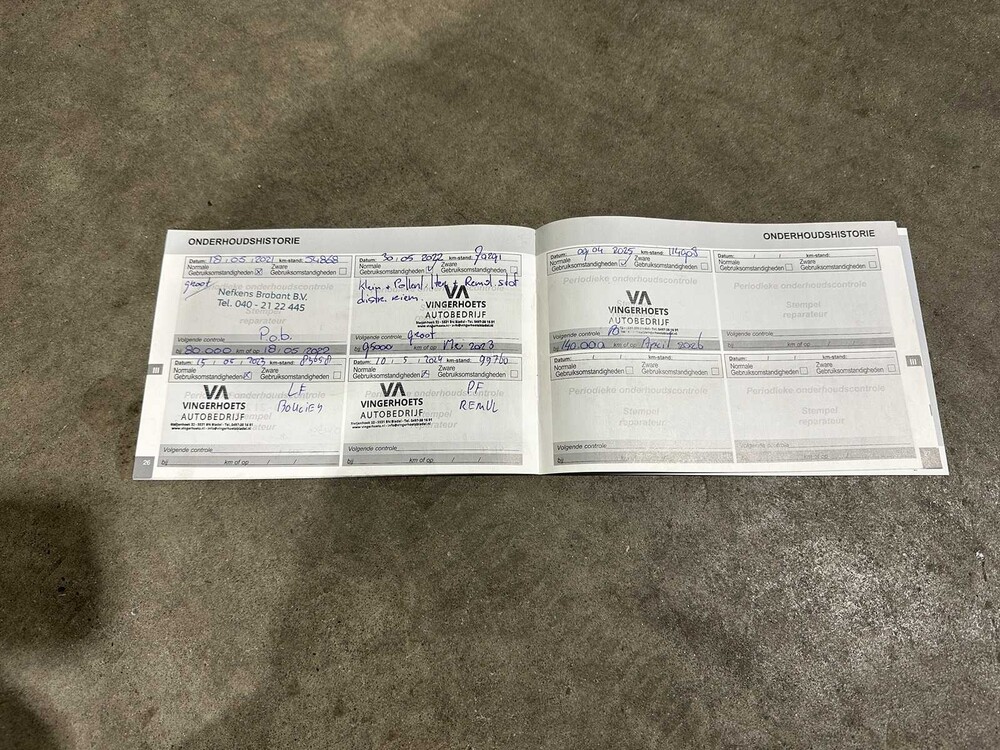 ONDERHOUDSHISTORIE
Datum: 18.05.2021 km-stand: 54868
Normale Zware
Gebruiksomstandigheden Gebruiksomstandigheden
groot
Nefkens Brabant B.V.
Tel. 040 - 21 22 445
reparateur
P.o.b.
Volgende controle
bij 80.000 km of op 18.05.2022
Datum: 30.05.2022 km-stand:
Normale Zware
Gebruiksomstandigheden Gebruiksomstandigheden
Klein + Pollen + Remvl. stof
distr. riem
VA
VINGERHOETS
AUTOBEDRIJF
Volgende controle groot
bij 95000 km of op Mei 2023
Datum: 15.05.2023 km-stand: 83658
Normale Zware
Gebruiksomstandigheden Gebruiksomstandigheden
VA
VINGERHOETS
AUTOBEDRIJF
LF
BOUGIES
Volgende controle
bij km of op / /
Datum: 10.5.2024 km-stand: 99760
Normale Zware
Gebruiksomstandigheden Gebruiksomstandigheden
VA
VINGERHOETS
AUTOBEDRIJF
PF
REMVL
Volgende controle
bij km of op / /
26
III
ONDERHOUDSHISTORIE
Datum: 09.04.2025 km-stand: 114908
Normale Zware
Gebruiksomstandigheden Gebruiksomstandigheden
Periodieke onderhoudscontrole
VA
VINGERHOETS
AUTOBEDRIJF
Volgende controle
bij 140.000 km of op April 2026
Datum: / / km-stand:
Normale Zware
Gebruiksomstandigheden Gebruiksomstandigheden
Periodieke onderhoudscontrole
Stempel
reparateur
Volgende controle
bij km of op / /
Datum: / / km-stand:
Normale Zware
Gebruiksomstandigheden Gebruiksomstandigheden
Periodieke onderhoudscontrole
Stempel
reparateur
Volgende controle
bij km of op / /
Datum: / / km-stand:
Normale Zware
Gebruiksomstandigheden Gebruiksomstandigheden
Periodieke onderhoudscontrole
Stempel
reparateur
Volgende controle
bij km of op / /
III